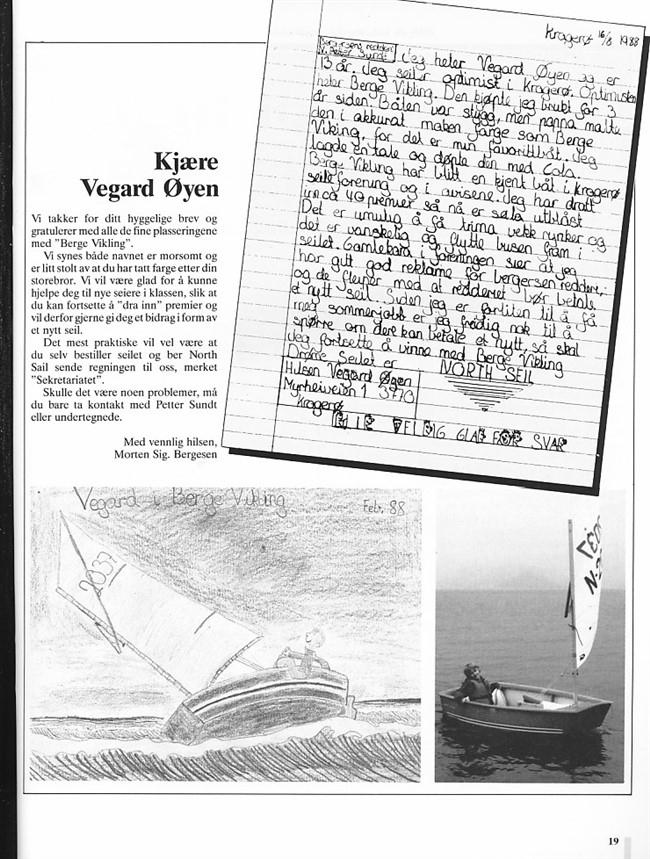 Kragerø 16/8 1988
Bergersens rederi
v. Petter Sundt
Jeg heter Vegard Øyen og er
13 år. Jeg seiler optimist i Kragerø. Optimisten
heter Berge Vikling. Den kjøpte jeg brukt for 3
år siden. Båten var stygg, men pappa malte
den i akkurat maken farge som Berge
Viking, for det er min favorittbåt. Jeg
lagde en tale og døpte din med Cola.
Berge Vikling har blitt en kjent båt i Kragerø
seilforening og i avisene. Jeg har dratt
inn ca 40 premier så nå er seila utblåst
Det er umulig å få trima vekk rynker og
det er vanskelig og flytte busen fram i
seilet. Gamlekara i foreningen sier at jeg
har gitt god reklame for bergersen rederi,
og de fleiper med at rederiet bør betale
et nytt seil. Siden jeg er for liten til å få
meg sommerjobb er jeg frådig nok til å
spørre om dere kan betale et nytt, så skal
jeg fortsette å vinne med Berge Vikling
Drømme Seilet er
NORTH SEIL
Hilsen Vegard Øyen
Myrheiveien 1 3770
Kragerø
BLIR VELDIG GLAD FOR SVAR
Kjære
Vegard Øyen
Vi takker for ditt hyggelige brev og
gratulerer med alle de fine plasseringene
med ”Berge Vikling”.
Vi synes både navnet er morsomt og
er litt stolt av at du har tatt farge etter din
storebror. Vi vil være glad for å kunne
hjelpe deg til nye seiere i klassen, slik at
du kan fortsette å ”dra inn” premier og
vil derfor gjerne gi deg et bidrag i form av
et nytt seil.
Det mest praktiske vil vel være at
du selv bestiller seilet og ber North
Sail sende regningen til oss, merket
”Sekretariatet”.
Skulle det være noen problemer, må
du bare ta kontakt med Petter Sundt
eller undertegnede.
Med vennlig hilsen,
Morten Sig. Bergesen
Vegard i Berge Vikling
Febr. 88
2037
19